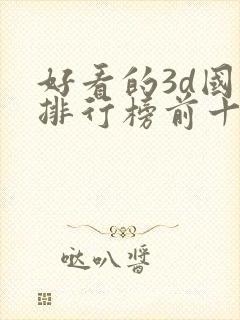 好看的3d國
排行榜前十
哒叭醬